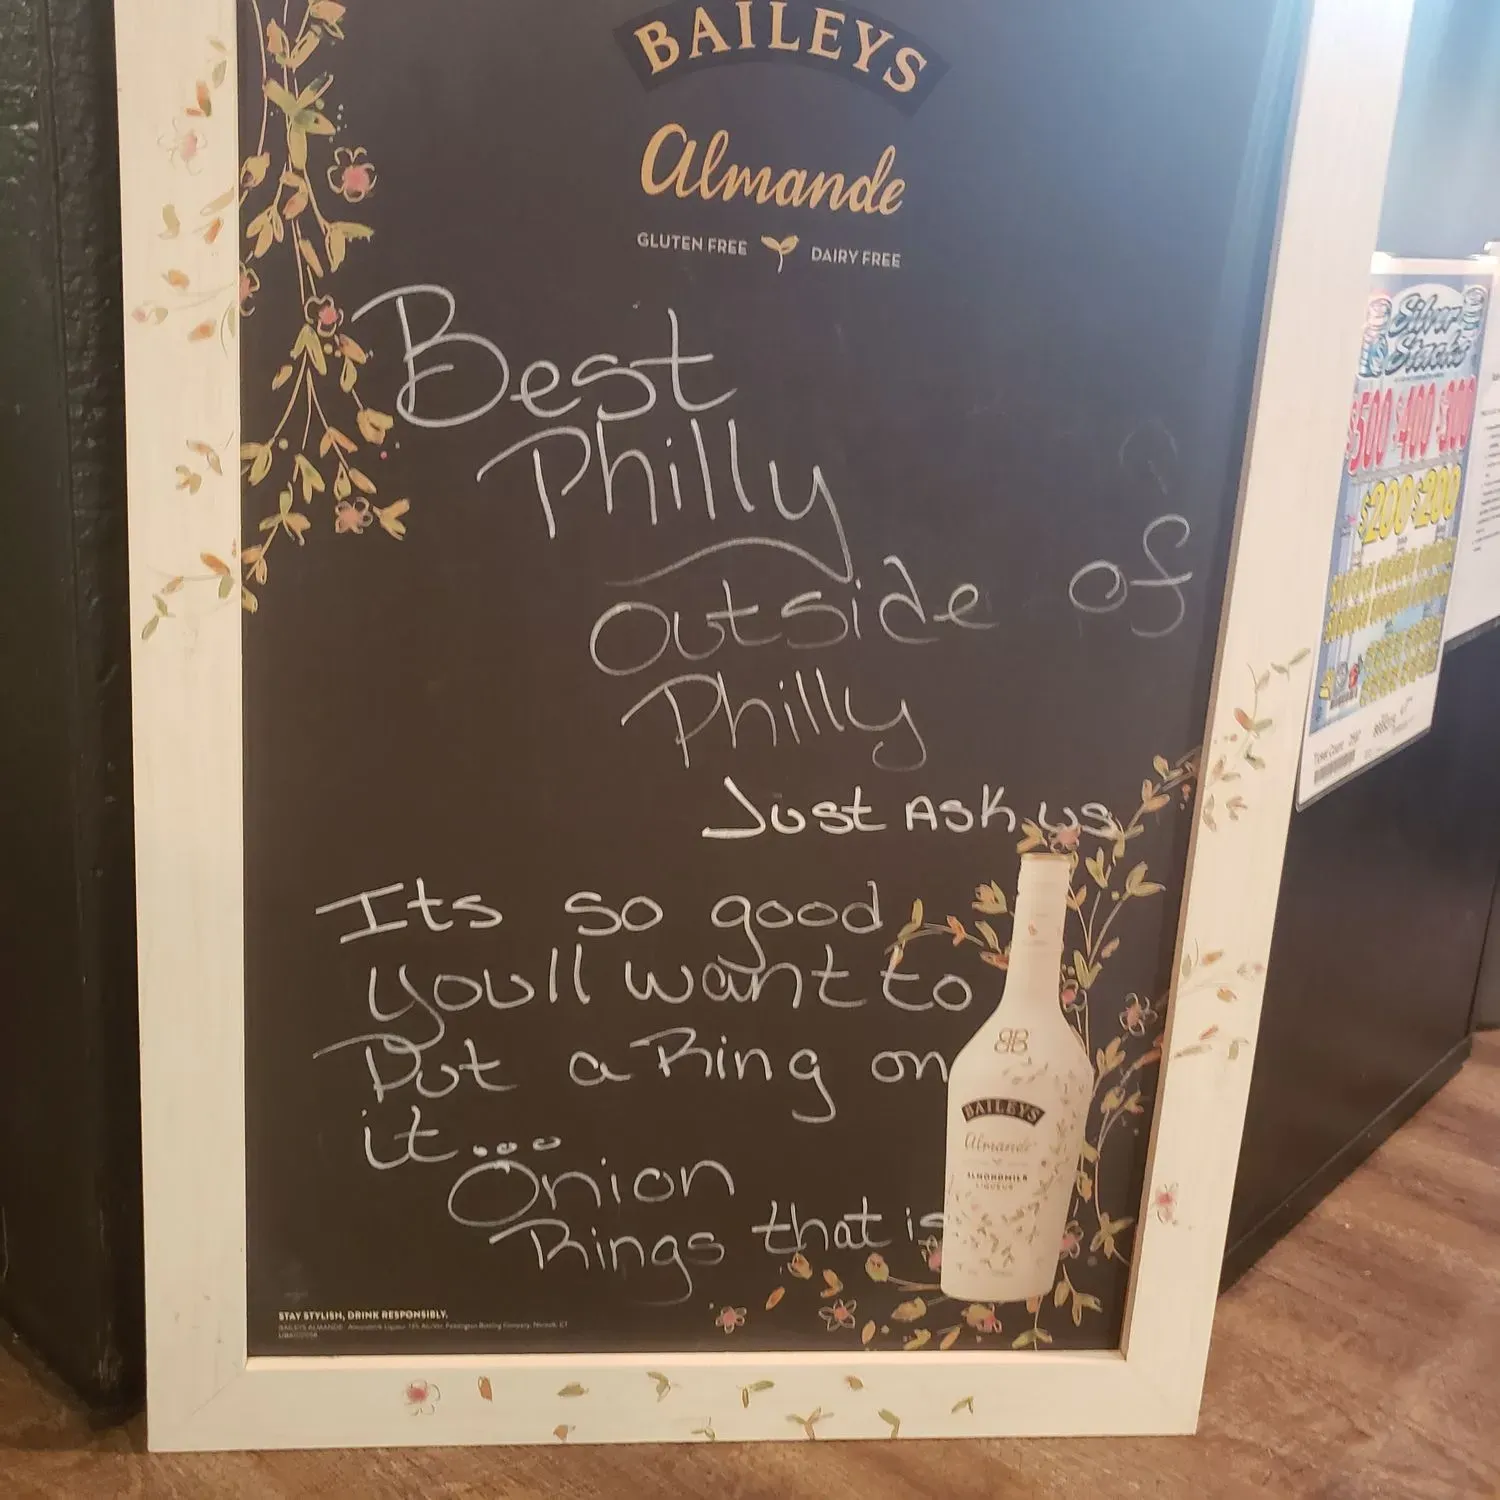 BAILEYS
Almande
GLUTEN FREE DAIRY FREE
Best
Philly
outside of
Philly
Just Ask us
Its so good
you'll want to
Put a Ring on
it...
Onion
Rings that is
BAILEYS
Almande
ALMONDMILK
LIQUEUR
STAY STYLISH, DRINK RESPONSIBLY.
Silver
Stacks
$500 $400 $300
$200 $200